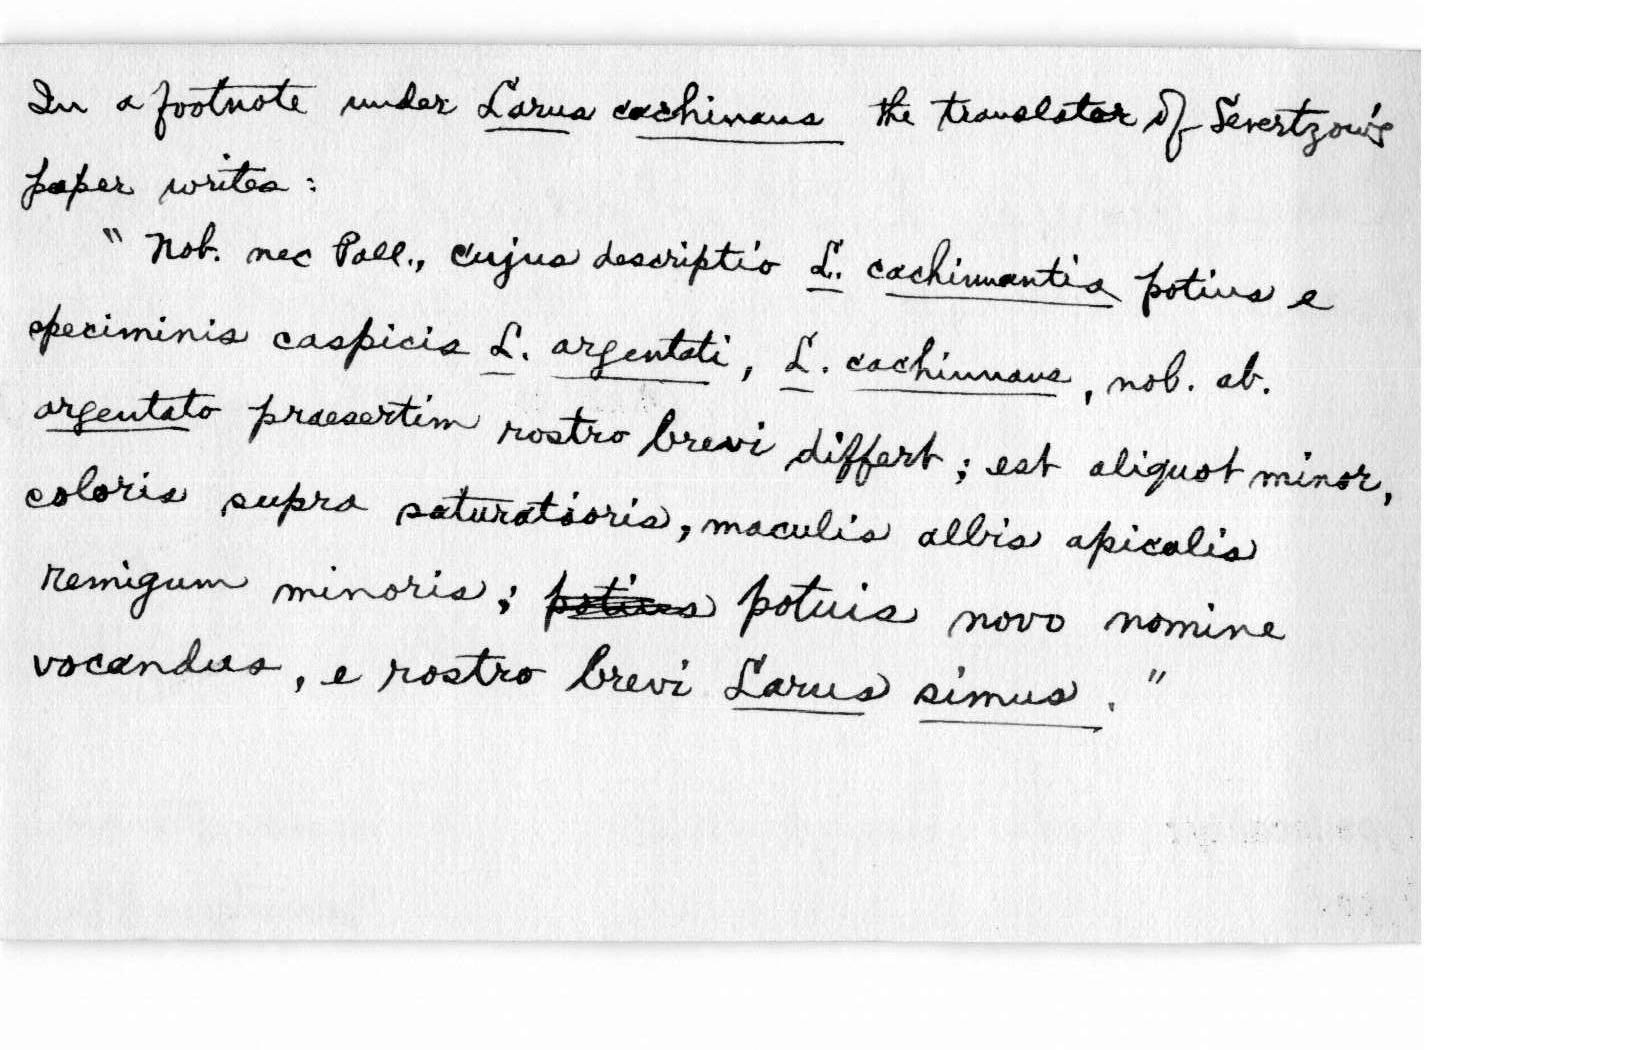 In a footnote under Larus cachinnans the translator of Severtzow's
paper writes:
" Nob. nec Pall., cujus descriptio L. cachinnantis potius e
speciminis caspicis L. argentati, L. cachinnans, nob. ab.
argentato praesertim rostro brevi differt; est aliquot minor,
coloris supra saturatioris, maculis albis apicalis
remigum minoris; potius potuis novo nomine
vocandus, e rostro brevi Larus simus."